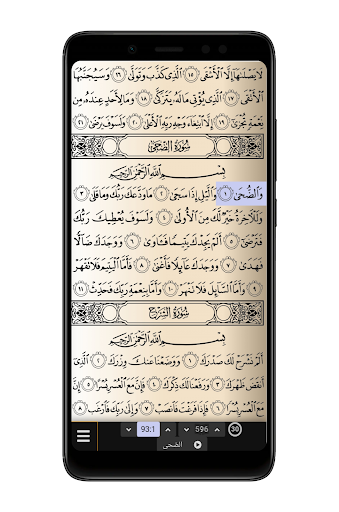 لَا يَصْلَىٰهَآ إِلَّا ٱلْأَشْقَى ١٥ ٱلَّذِى كَذَّبَ وَتَوَلَّىٰ ١٦ وَسَيُجَنَّبُهَا
ٱلْأَتْقَى ١٧ ٱلَّذِى يُؤْتِى مَالَهُۥ يَتَزَكَّىٰ ١٨ وَمَا لِأَحَدٍ عِندَهُۥ مِن
نِّعْمَةٍ تُجْزَىٰٓ ١٩ إِلَّا ٱبْتِغَآءَ وَجْهِ رَبِّهِ ٱلْأَعْلَىٰ ٢٠ وَلَسَوْفَ يَرْضَىٰ ٢١
سُورَةُ الضُّحَىٰ
بِسْمِ ٱللَّهِ ٱلرَّحْمَٰنِ ٱلرَّحِيمِ
وَٱلضُّحَىٰ ١ وَٱلَّيْلِ إِذَا سَجَىٰ ٢ مَا وَدَّعَكَ رَبُّكَ وَمَا قَلَىٰ ٣
وَلَلْءَاخِرَةُ خَيْرٌ لَّكَ مِنَ ٱلْأُولَىٰ ٤ وَلَسَوْفَ يُعْطِيكَ رَبُّكَ
فَتَرْضَىٰٓ ٥ أَلَمْ يَجِدْكَ يَتِيمًا فَـَٔاوَىٰ ٦ وَوَجَدَكَ ضَآلًّا
فَهَدَىٰ ٧ وَوَجَدَكَ عَآئِلًا فَأَغْنَىٰ ٨ فَأَمَّا ٱلْيَتِيمَ فَلَا تَقْهَرْ
٩ وَأَمَّا ٱلسَّآئِلَ فَلَا تَنْهَرْ ١٠ وَأَمَّا بِنِعْمَةِ رَبِّكَ فَحَدِّثْ ١١
سُورَةُ الشَّرْحِ
بِسْمِ ٱللَّهِ ٱلرَّحْمَٰنِ ٱلرَّحِيمِ
أَلَمْ نَشْرَحْ لَكَ صَدْرَكَ ١ وَوَضَعْنَا عَنكَ وِزْرَكَ ٢ ٱلَّذِىٓ
أَنقَضَ ظَهْرَكَ ٣ وَرَفَعْنَا لَكَ ذِكْرَكَ ٤ فَإِنَّ مَعَ ٱلْعُسْرِ يُسْرًا ٥ إِنَّ
مَعَ ٱلْعُسْرِ يُسْرًا ٦ فَإِذَا فَرَغْتَ فَٱنصَبْ ٧ وَإِلَىٰ رَبِّكَ فَٱرْغَب ٨
93:1 596 30
الضحى